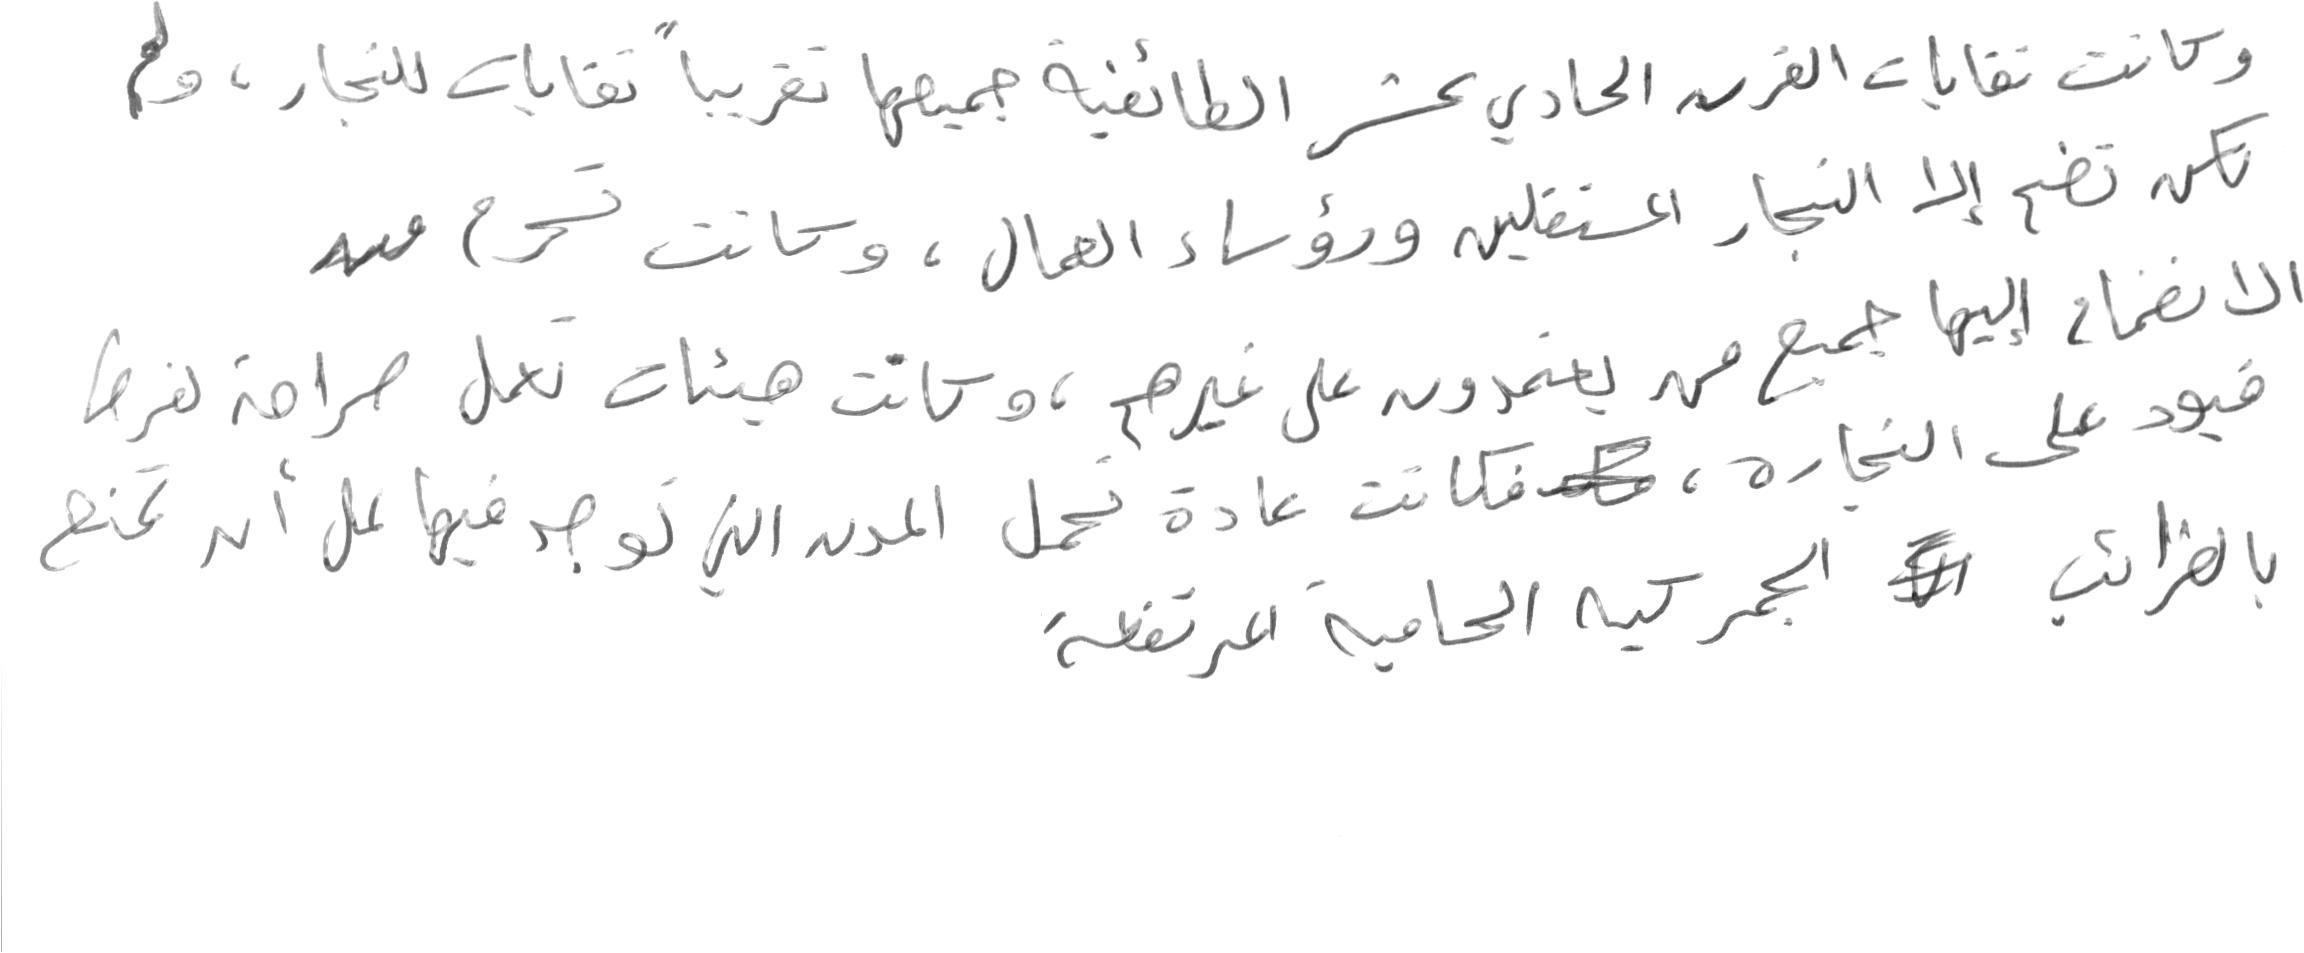 وكانت نقابات القرن الحادي عشر الطائفية جميعها تقريباً نقابات للتجار، ولم
تكن تضم إلا التجار المستقلين ورؤساء العمال، وكانت تحرم من
الانضمام إليها جميع من يعتمدون على غيرهم، وكانت هيئات تعمل صراحة لفرض
قيود على التجاره، فكانت عادة تحمل المدن التي توجد فيها على أن تمنع
بالضرائب الجمركيه الحامية المرتفعة